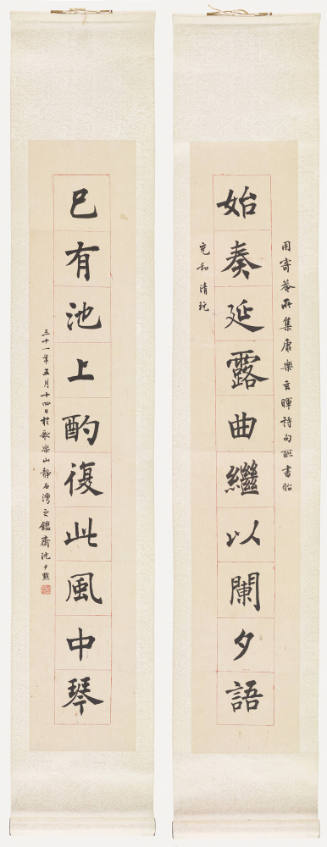 用寄菴所集康樂玄暉詩句聯書貽
始奏延露曲繼以闌夕語
充和清玩
已有池上酌復此風中琴
三十一年五月十四日於歌樂山靜石灣之鑑齋沈尹默